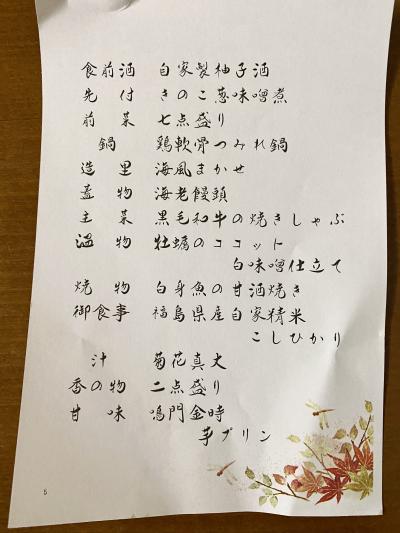 食前酒 自家製柚子酒
先付 きのこ葱味噌煮
前菜 七点盛り
鍋 鶏軟骨つみれ鍋
造里 海風まかせ
蓋物 海老饅頭
主菜 黒毛和牛の焼きしゃぶ
温物 牡蠣のココット
白味噌仕立て
焼物 白身魚の甘酒焼き
御食事 福島県産自家精米
こしひかり
汁 菊花真丈
香の物 二点盛り
甘味 鳴門金時
芋プリン
5